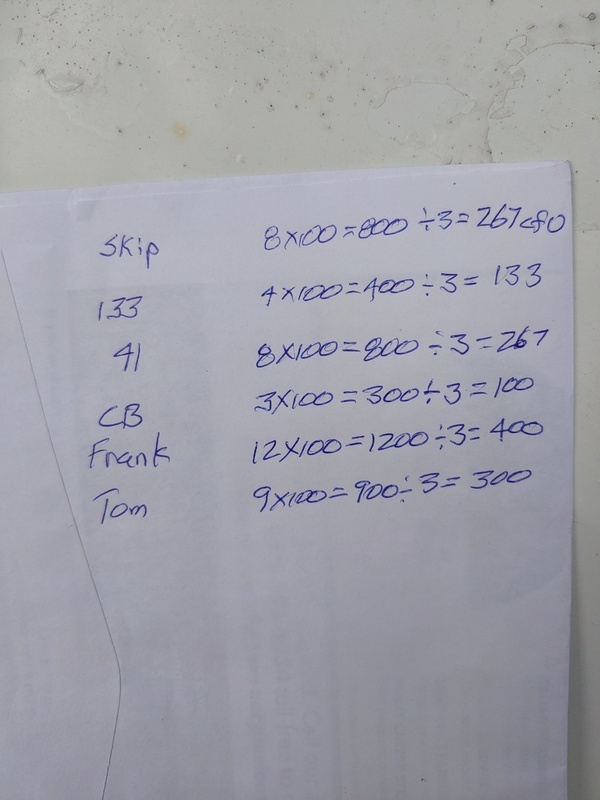 Skip 8x100=800÷3=267 cfo
133 4x100=400÷3=133
41 8x100=800÷3=267
CB 3x100=300÷3=100
Frank 12x100=1200÷3=400
Tom 9x100=900÷3=300